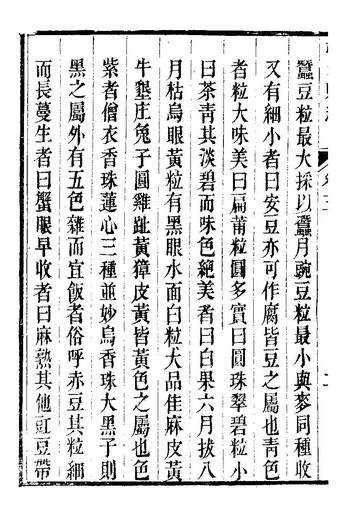 蠶豆粒最大採以蠶月豌豆粒最小與麥同種收
又有細小者曰安豆亦可作腐皆豆之屬也靑色
者粒大味美曰扁莆粒圓多實曰圓珠翠碧粒小
曰茶靑其淡碧而味色絕美者曰白果六月拔八
月枯烏眼黃粒有黑眼水面白粒大品佳麻皮黃
牛墾庄兔子圓雞趾黃獐皮黃皆黃色之屬也色
紫者僧衣香珠蓮心三種並妙烏香珠大黑子則
黑之屬外有五色雜而宜飯者俗呼赤豆其粒細
而長蔓生者曰蟹眼早收者曰麻熟其他豇豆帶